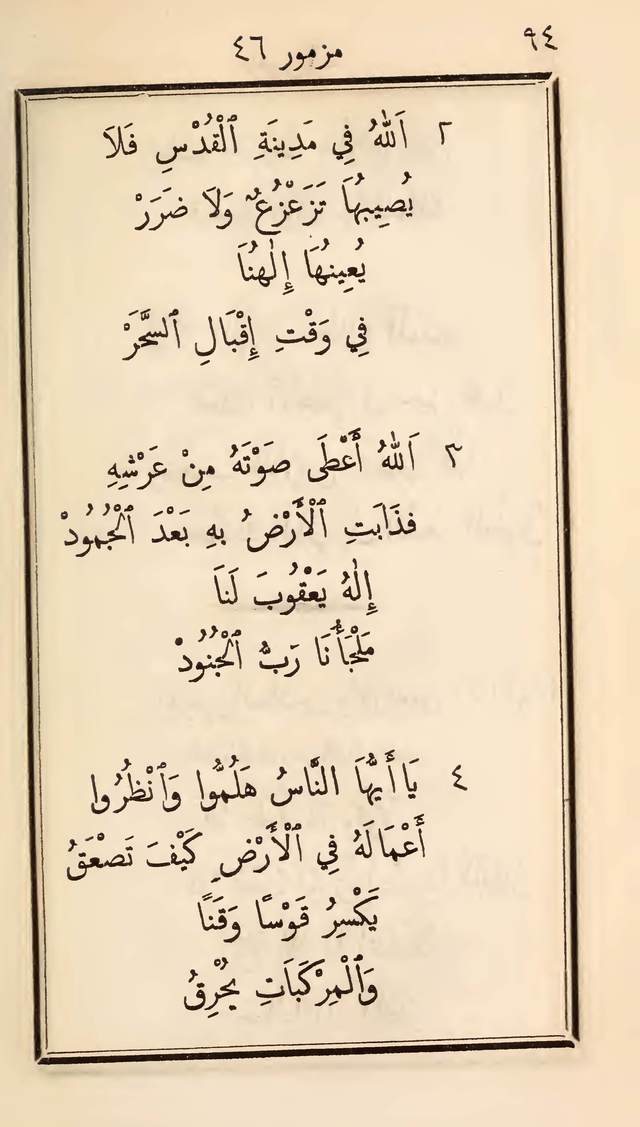 ٩٤
مزمور ٤٦
٢ اَللهُ فِي مَدِينَةِ ٱلْقُدْسِ فَلاَ
يُصِيبهَا تَزَعْزُعٌ وَلاَ ضرَرْ
يُعِينهَا إِلٰهنُاَ
فِي وَقْتِ إِقْبَالِ ٱلسَّحَرْ
٣ اَللهُ أَعْطَى صَوْتَهُ مِنْ عَرْشِهِ
فَذَابَتِ ٱلْأَرْضُ بهِ بَعْدَ ٱلْجُمُودْ
إِلٰهُ يَعْقُوبَ لَنَا
مَلْجَأُنَا رَبُّ ٱلْجُنُودْ
٤ يَا أَيُّهَا النَّاسُ هَلُمُّوا وَٱنْظُرُوا
أَعْمَالَهُ فِي ٱلْأَرْضِ كَيْفَ تَصْعَقُ
يَكْسِرُ قَوْسًا وَقَنًا
وَٱلْمِرْكَبَاتِ يُحْرِقُ